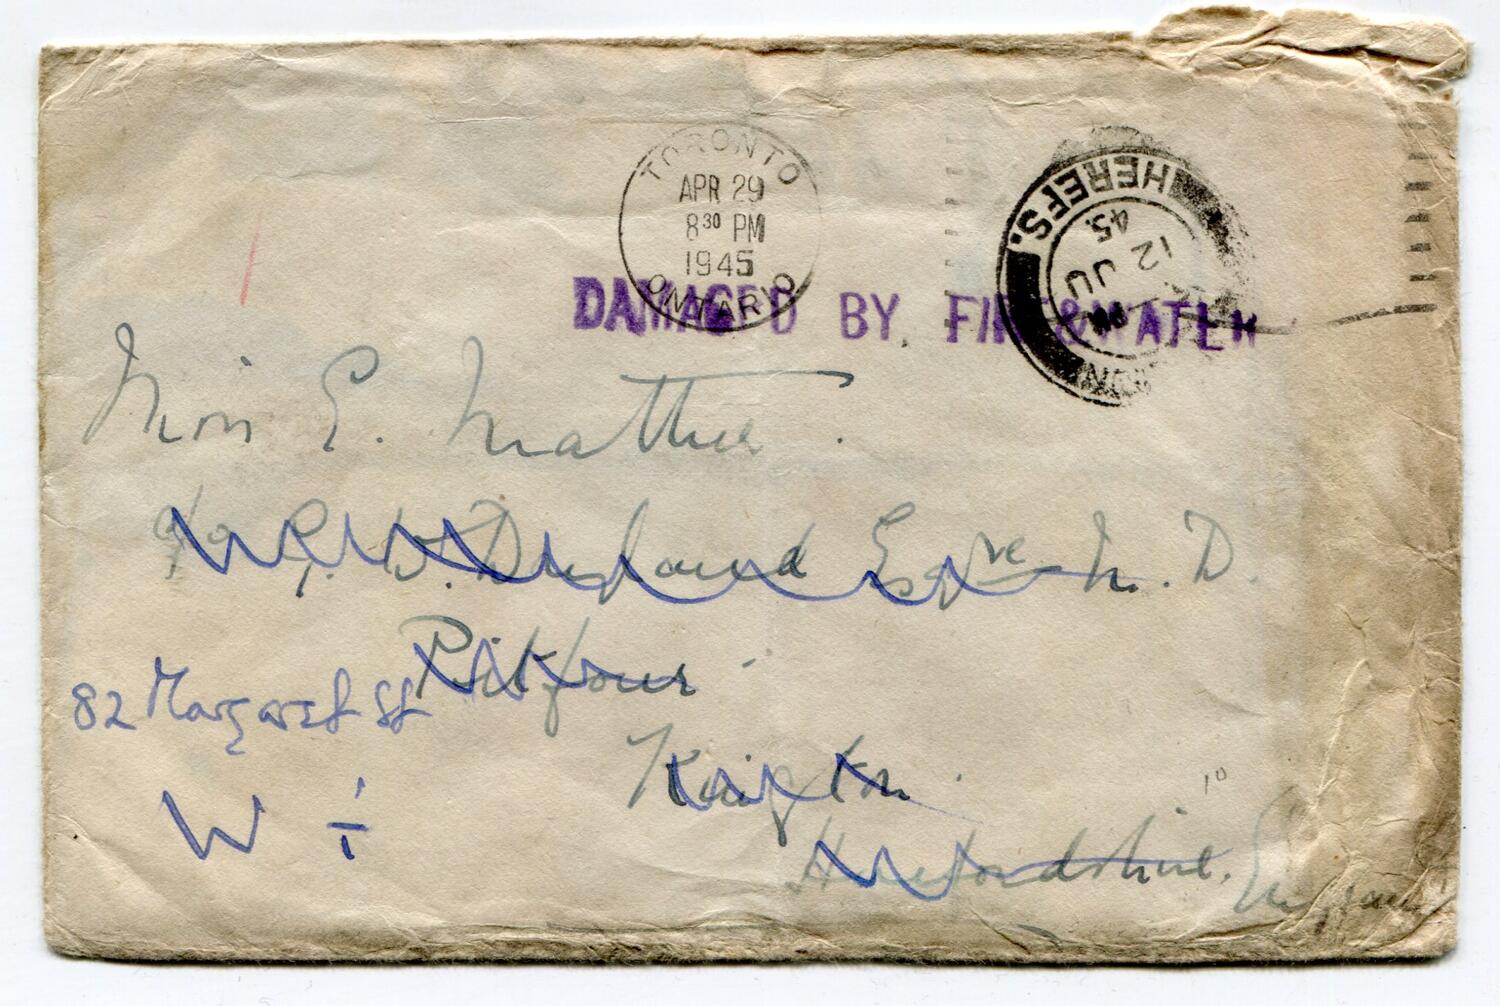 TORONTO
APR 29
8 30 PM
1945
ONTARIO
HEREFS.
12 JU
45
DAMAGED BY FIRE & WATER
Miss E. Mather.
c/o G. W. Dryland Esqre M.D.
Kington.
Herefordshire. England
82 Margaret St
W 1
10